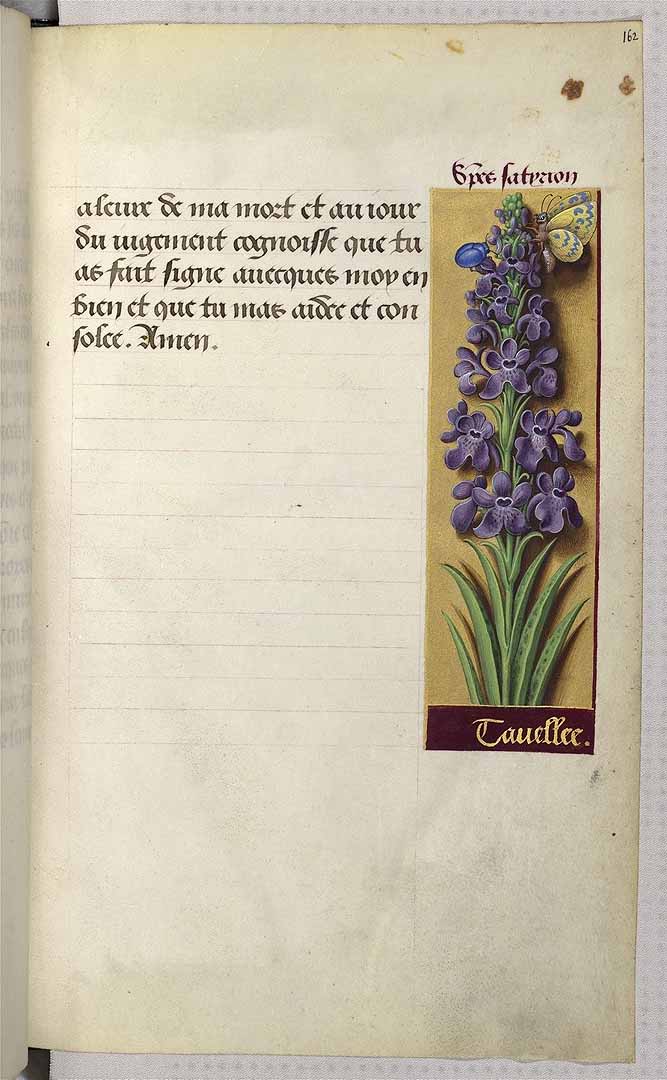 162
Spēs satyrion
a leure de ma mort et au iour
du iugement cognoisse que tu
as fait signe auecques moy en
bien et que tu mas aidee et con
solee. Amen.
Tauellee.